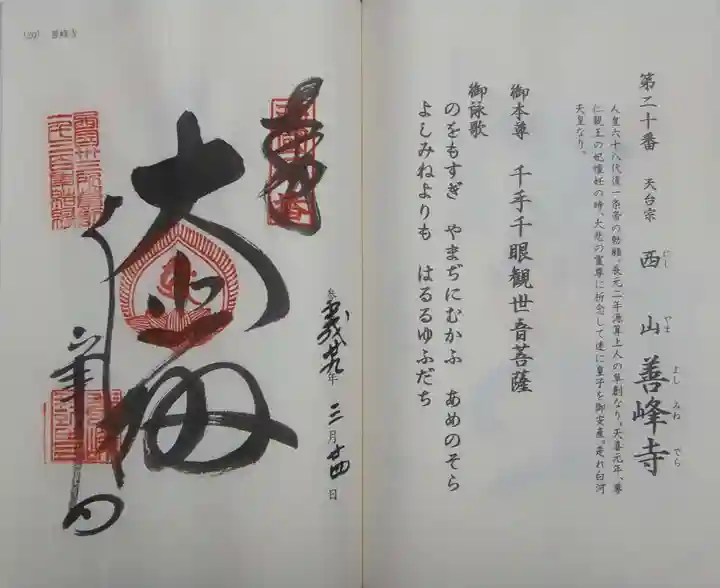 第二十番 天台宗 西山善峰寺
にし やま よし みね でら
人皇六十八代後一条帝の勅願。長元二年源算上人の草創なり。天喜元年、尊
仁親王の妃懐妊の時、大悲の霊尊に祈念して遂に皇子を御安産。是れ白河
天皇なり。
御本尊 千手千眼観世音菩薩
御詠歌
のをもすぎ やまぢにむかふ あめのそら
よしみねよりも はるるゆふだち
(20) 善峰寺
奉拝
大悲殿
善峯寺
平成廿九年 三月廿四日